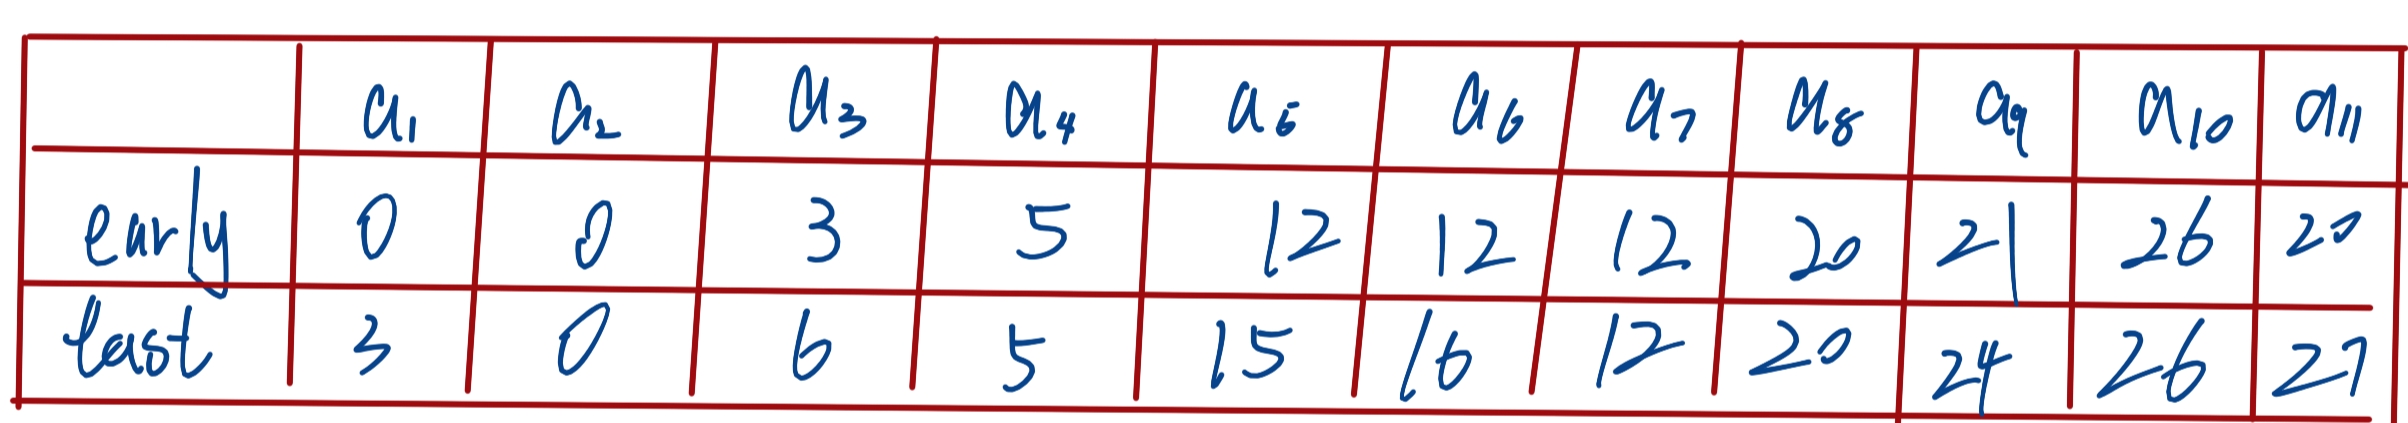 a₁ a₂ a₃ a₄ a₅ a₆ a₇ a₈ a₉ a₁₀ a₁₁
early 0 0 3 5 12 12 12 20 21 26 20
last 3 0 6 5 15 16 12 20 24 26 27